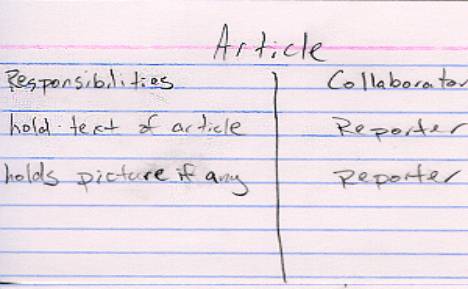 Article
Responsibilities Collaborator
hold text of article Reporter
holds picture if any Reporter